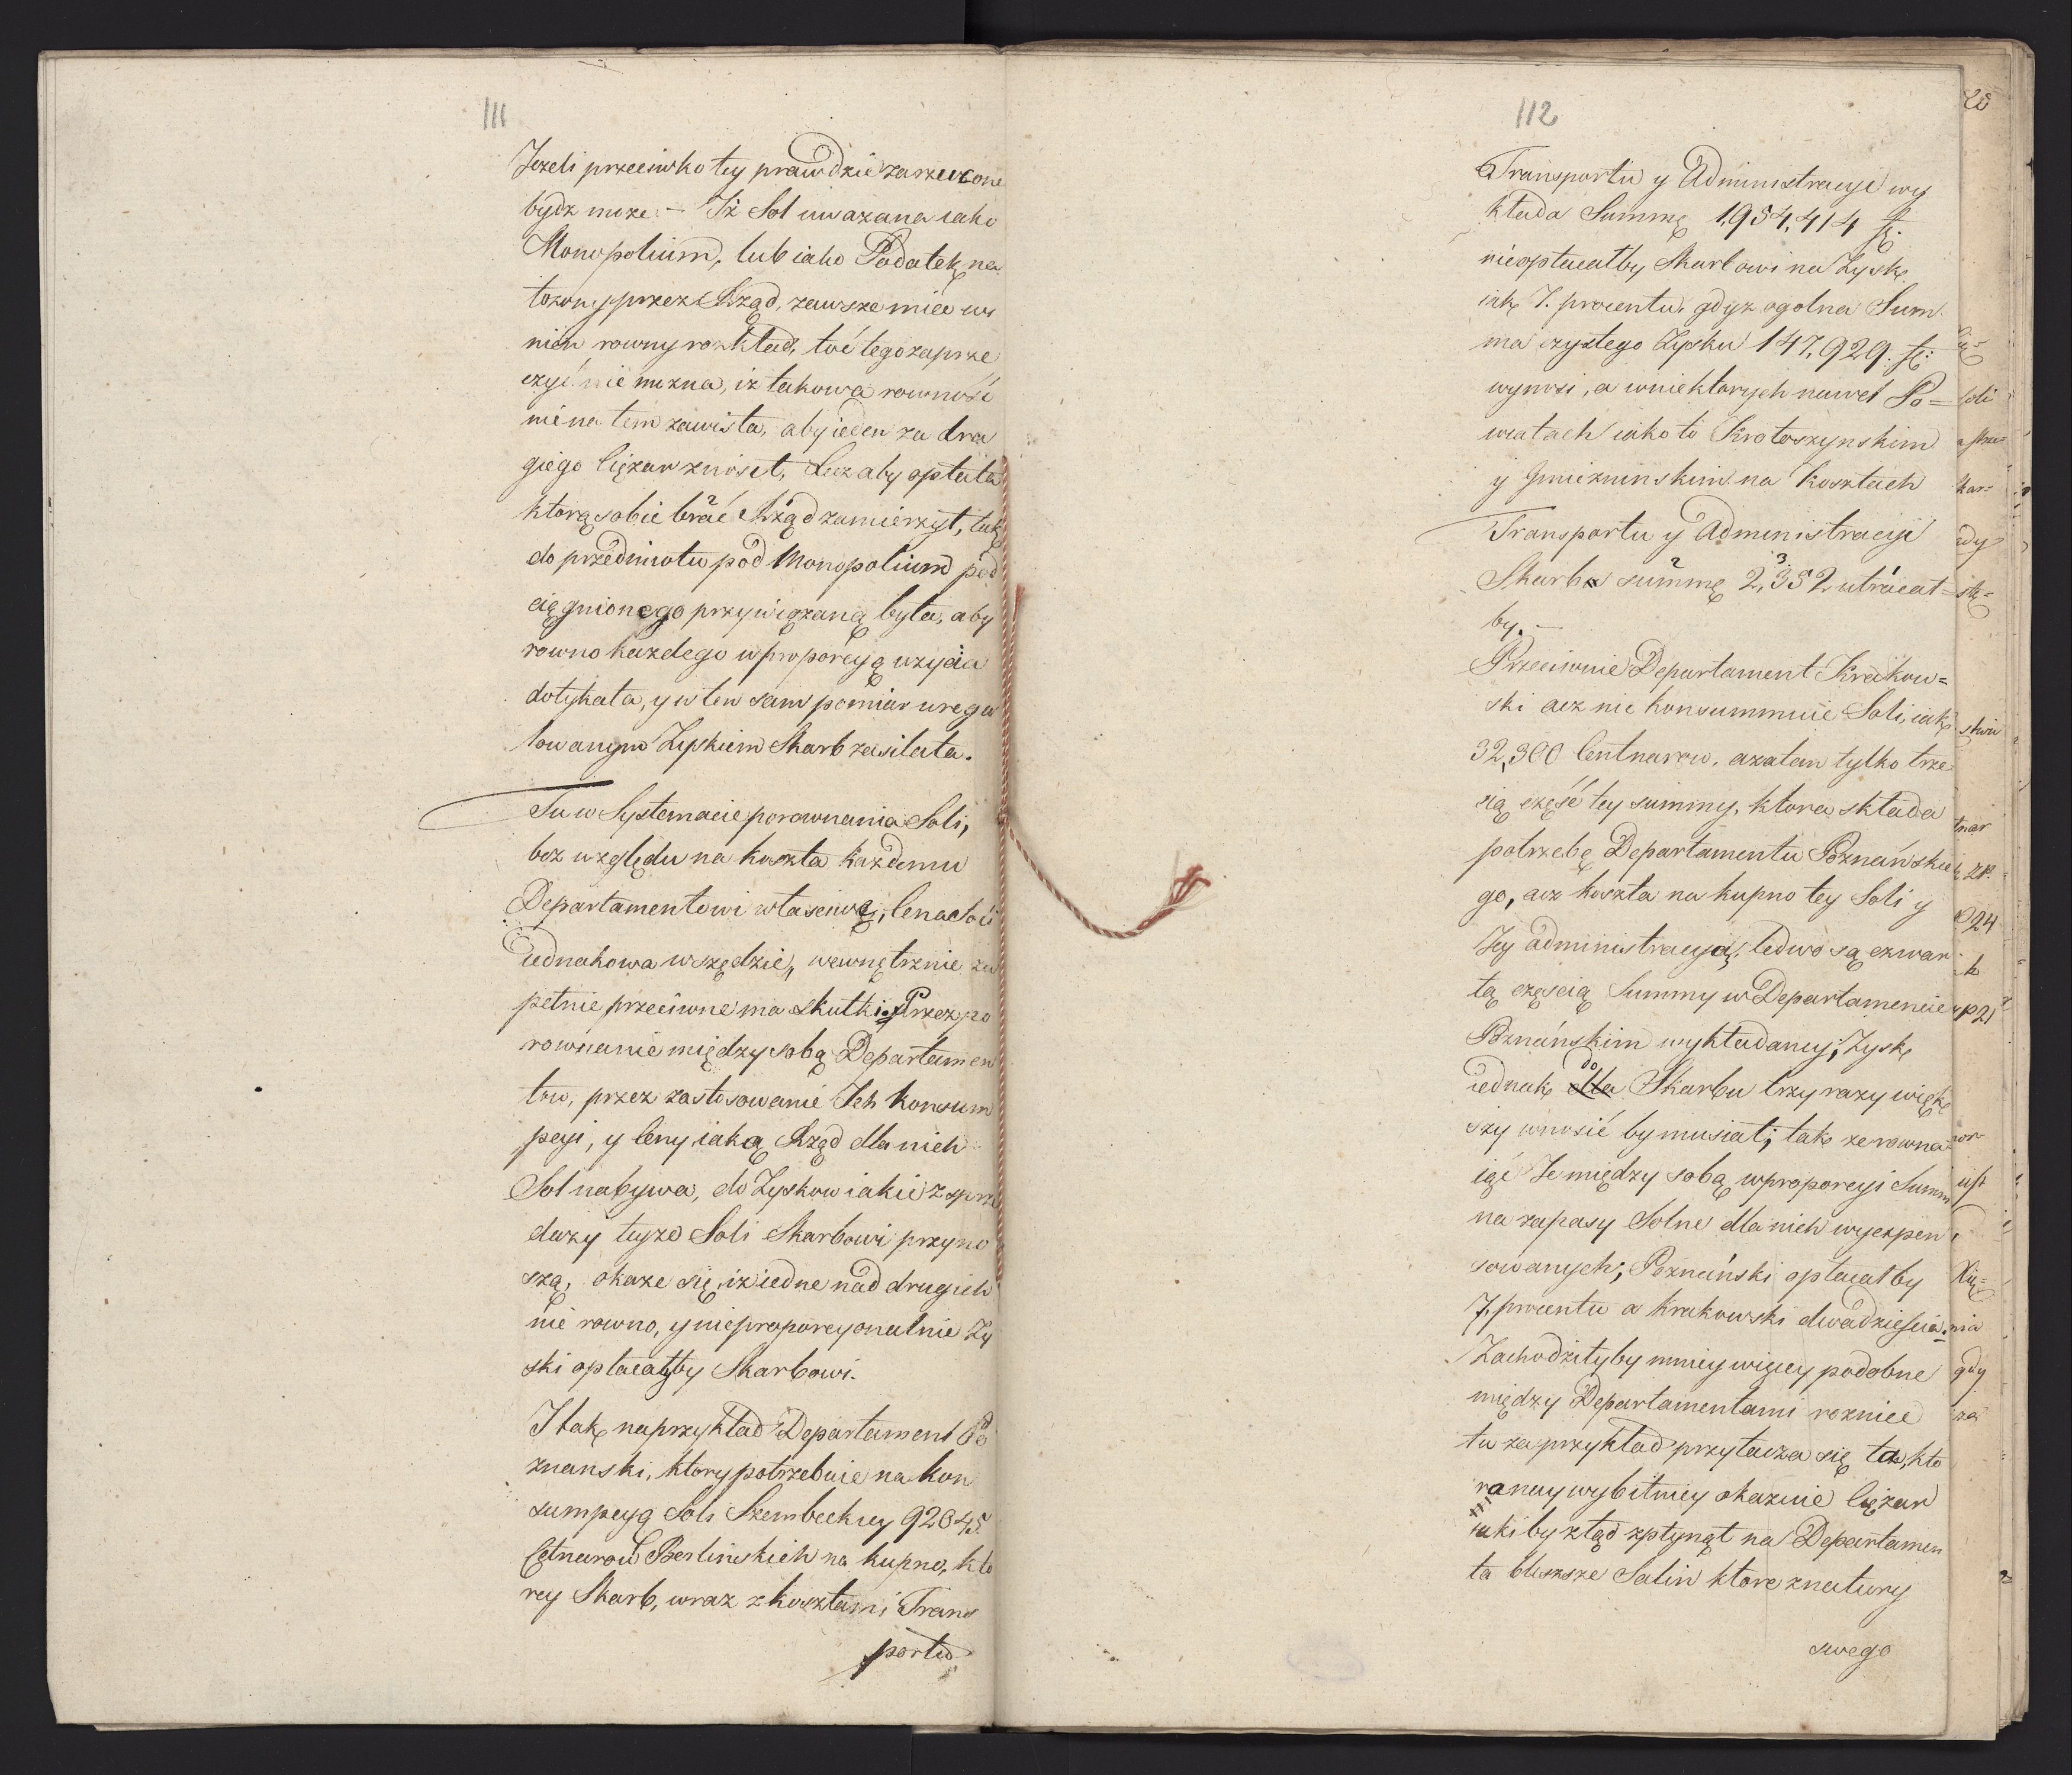 111
Jezeli przeciwko tey prawdzie zarzucone
bydz moze: – Iż Sol uwazana iako
Monopolium, lub iako Podatek na
łozony przez Rząd, zawsze miec wi
nien rowny rozkład, toć tego zaprze
czyć nie mozna, iz takowa rowność
nie na tem zawisła, aby ieden za dru
giego Ciężar znosił, Lecz aby opłata
ktorą sobie brać Rząd zamierzył, tak
do przedmiotu pod Monopolium pod
ciągnionego przywiązaną była, aby
rowno kazdego w proporcyą uzycia
dotykała, y w ten sam pomiar uregu
lowanym Zyskiem Skarb zasilała.
Tu w Systemacie porownania Soli,
bez względu na koszta kazdemu
Departamentowi własciwe, Cena Soli
iednakowa wszędzie, wewnętrznie zu
pełnie przeciwne ma skutki. Przez po
rownanie między sobą Departamen
tow, przez zastosowanie Ich konsum
pcyi, y Ceny iaką Rząd dla nich
Sol nabywa, do Zyskow iakie z sprze
dazy teyze Soli Skarbowi przyno
szą, okaze się, iz iedne nad drugich
nie rowno, y nieproporcyonalnie Zy
ski opłacałyby Skarbowi.
I tak naprzykład Departament Po
znanski, ktory potrzebuie na kon
sumpcyą Soli Szembeckiey 92045
Cetnarow Berlinskich na kupno, kto
rey Skarb, wraz z kosztami Trans
portu
112
Transportu y Administracyi wy
kłada Summę 1,954,414 f:
nieopłacałby Skarbowi na Zysk
iak 7. procentu, gdyz ogolna Sum
ma czystego Zysku 147,929. f:
wynosi, a w niektorych nawet Po=
wiatach iako to Krotoszynskim
y Gniezninskim na kosztach
Transportu y Administracyi
Skarb summę 2,352 utracał=
3
by. –
Przeciwnie Departament Krakow=
ski acz nie konsummuie Soli, iak
32,300 Centnarow, a zatem tylko trze
cią część tey summy, ktora składa
potrzebę Departamentu Poznanskie
go, acz koszta na kupno tey Soli y
Jey administracyą, ledwo są czwar
tą częscią Summy w Departamencie
Poznańskim wykładaney; Zysk
iednak do Skarbu trzy razy więk
szy wnosić by musiał; tak ze rowna
iąc Je między sobą w proporcyi Summ
na zapasy Solne dla nich wyexpen
sowanych; Poznański opłacałby
7. procentu a Krakowski dwadziescia.
Zachodziłyby mniey więcey podobne
między Departamentami roznice
tu za przykład przytacza się ta, kto
ra nay wybitniey okazuie Ciężar
iaki by ztąd spłynął na Departamen
ta bliższe Salin ktore z natury
swego